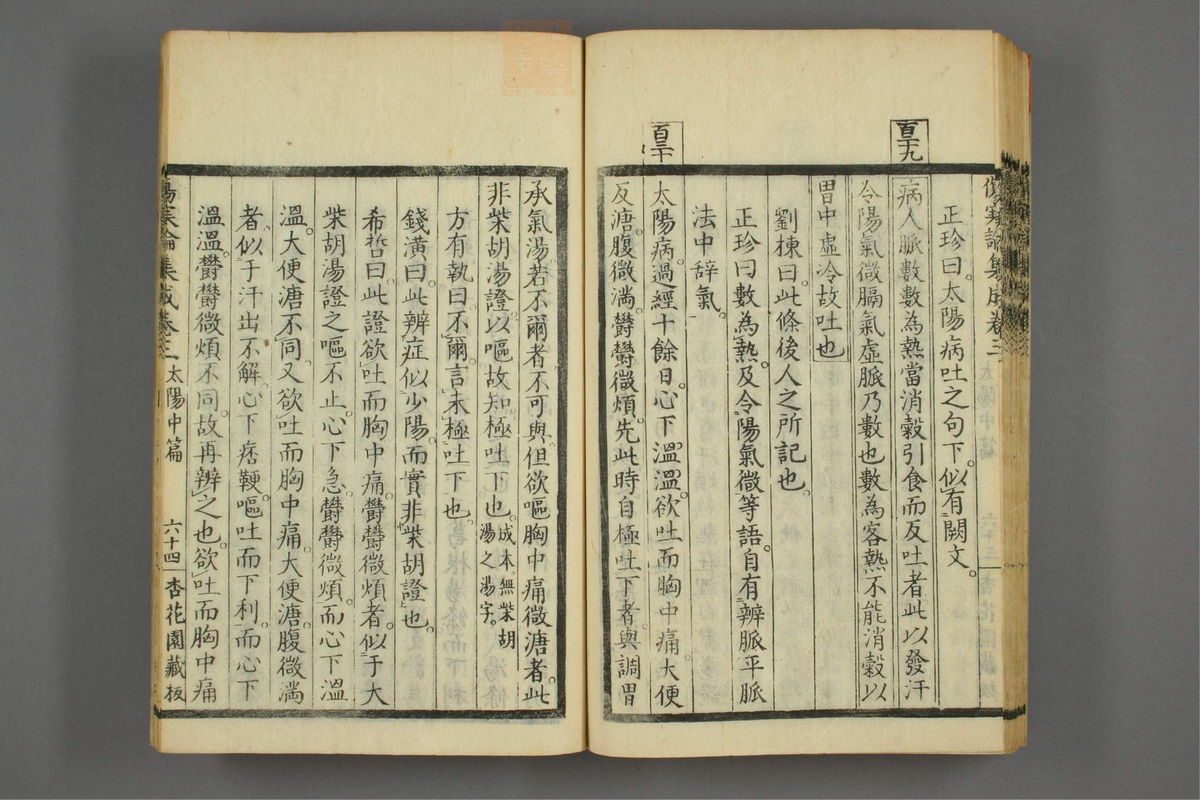 傷寒論集成卷三
百二十九
正珍曰。太陽病吐之句下。似有闕文。
病人脈數數為熱當消穀引食而反吐者此以發汗
令陽氣微膈氣虛脈乃數也數為客熱不能消穀以
胃中虛冷故吐也
劉棟曰。此條後人之所記也。
正珍曰數為熱。及令陽氣微等語。自有辨脈平脈
法中辞氣。
百三十
太陽病。過經十餘日。心下溫溫。欲吐而胸中痛。大便
反溏。腹微満。鬱鬱微煩。先此時自極吐下者。與調胃
承氣湯。若不爾者。不可與。但欲嘔胸中痛微溏者。此
非柴胡湯證。以嘔故知極吐下也。成本無柴胡
湯之湯字。
方有執曰。不爾。言未極吐下也。
錢潢曰。此辨症似少陽。而實非柴胡證也。
希哲曰。此證欲吐而胸中痛。鬱鬱微煩者。似于大
柴胡湯證之嘔不止。心下急。鬱鬱微煩。而心下溫
溫。大便溏不同。又欲吐而胸中痛。大便溏。腹微満
者。似于汗出不解。心下痞鞕。嘔吐而下利。而心下
溫溫。鬱鬱微煩不同。故再辨之也。欲吐而胸中痛
傷寒論集成卷三 太陽中篇 六十四 杏花園藏板